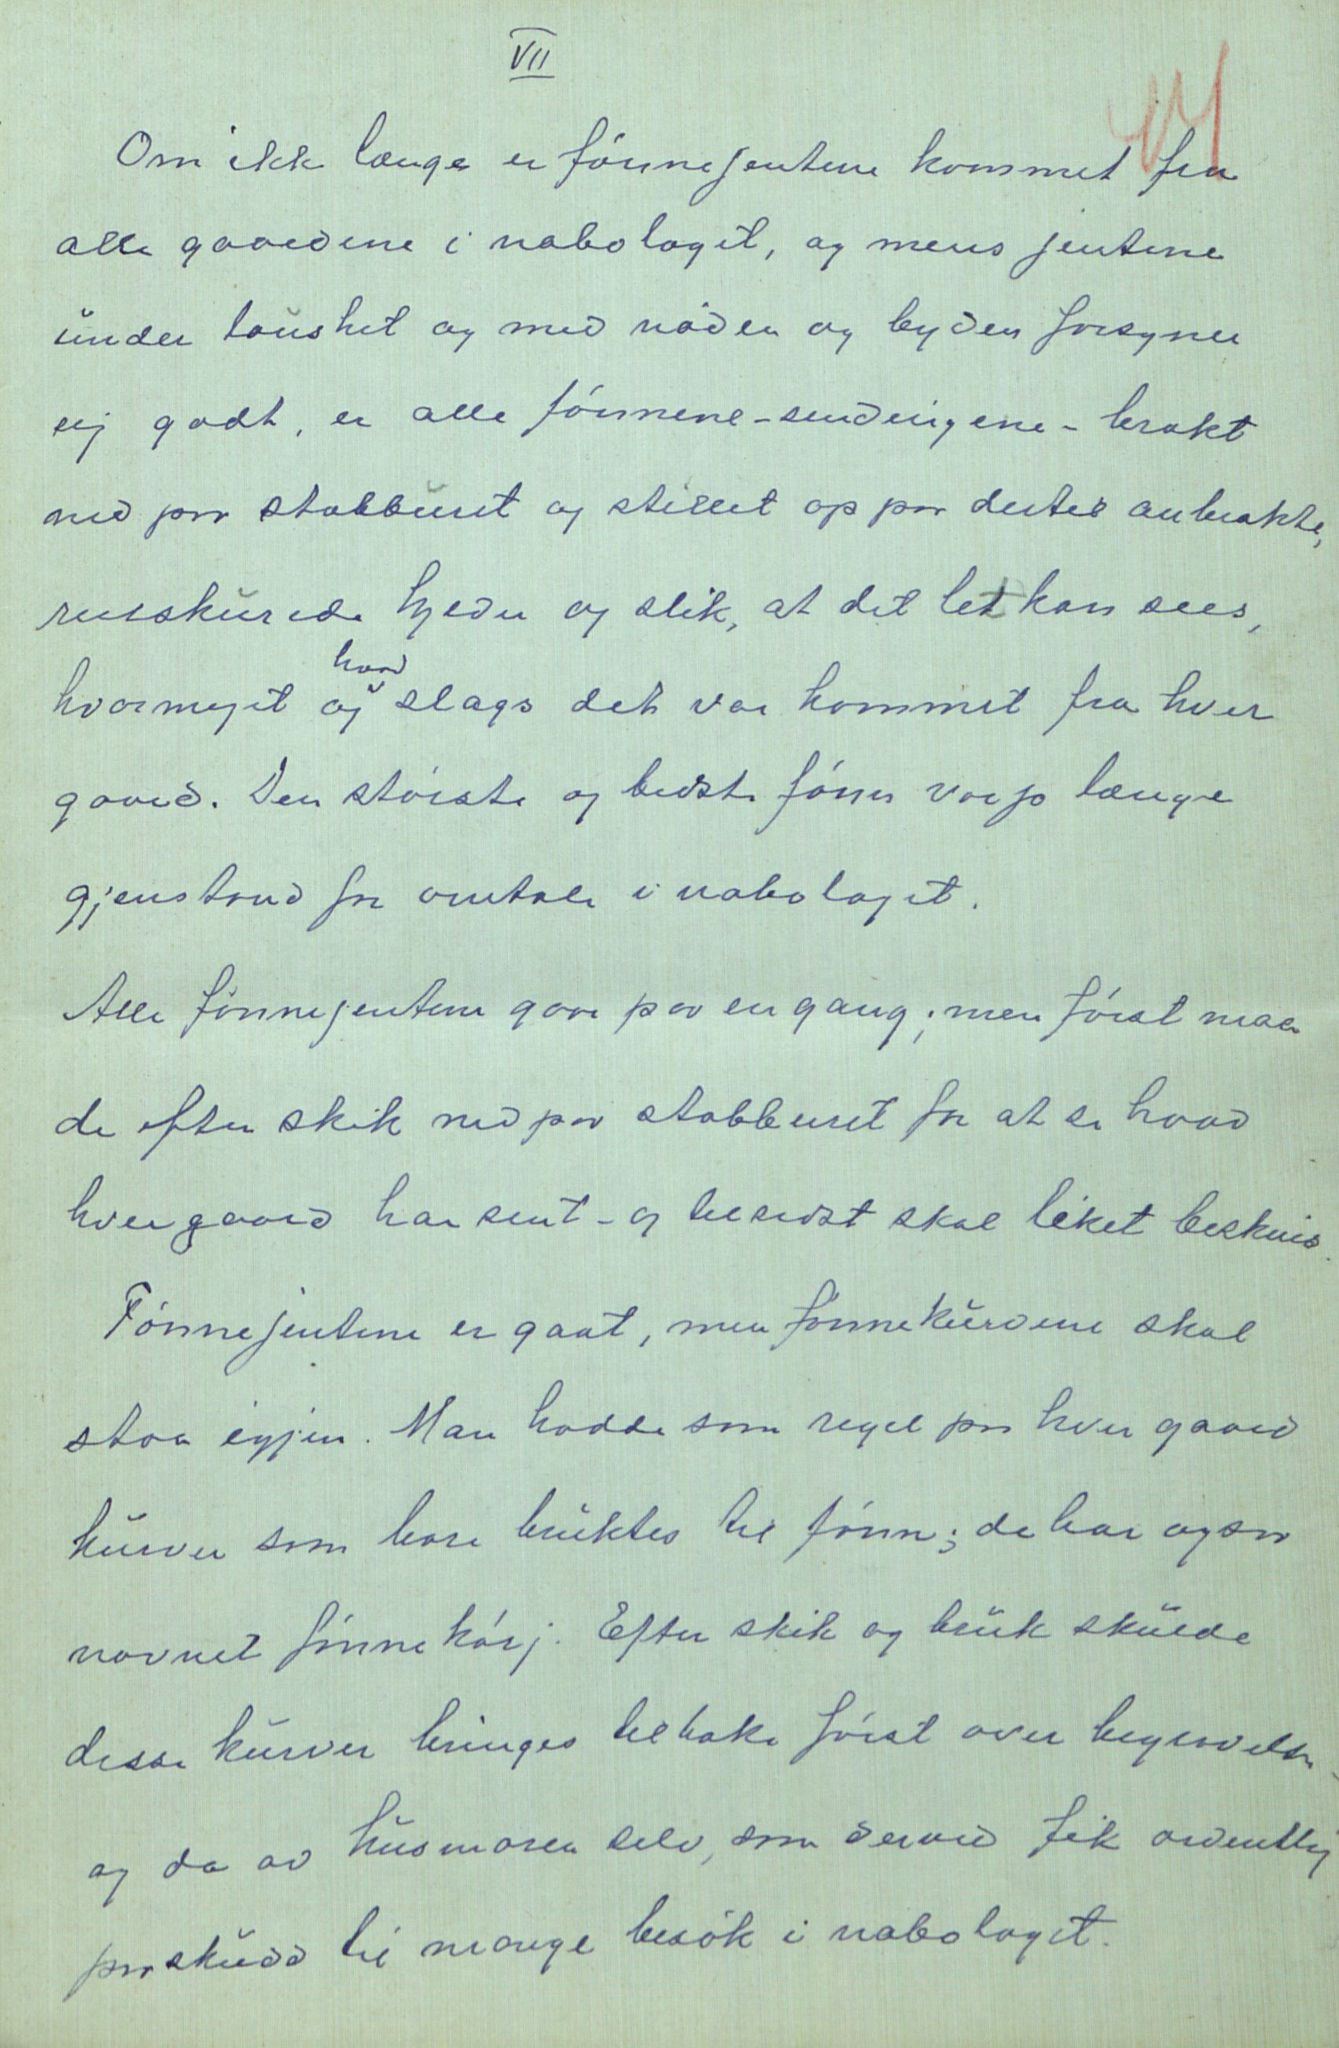 VII
Om ikke længe er fönnejentene kommet fra
alle gaardene i nabolaget, og mens jentene
under taushet og med nöden og byden forsyner
sig godt, er alle fönnene - sendingene - brakt
ned paa stabburet og stillet op paa dertil anbrakte,
renskurede fjeder og slik, at det let kan sees,
hvormeget og hvad slags det var kommet fra hver
gaard. Den störste og bedste fönn var jo længe
gjenstand for omtale i nabolaget.
Alle fönnejentene gaar paa en gang; men först maa
de efter skik ned paa stabburet for at se hvad
hver gaard har sent - og tilsidst skal liket beskues.
Fönnejentene er gaat, men fönnekurvene skal
staa igjen. Man hadde som regel paa hver gaard
kurver som bare bruktes til fönn; de bar ogsaa
navnet fönnekörj. Efter skik og bruk skulde
disse kurver bringes tilbake först over begravelsen
og da av husmoren selv, som derved fik ordentlig
paaskudd til mange besök i nabolaget.